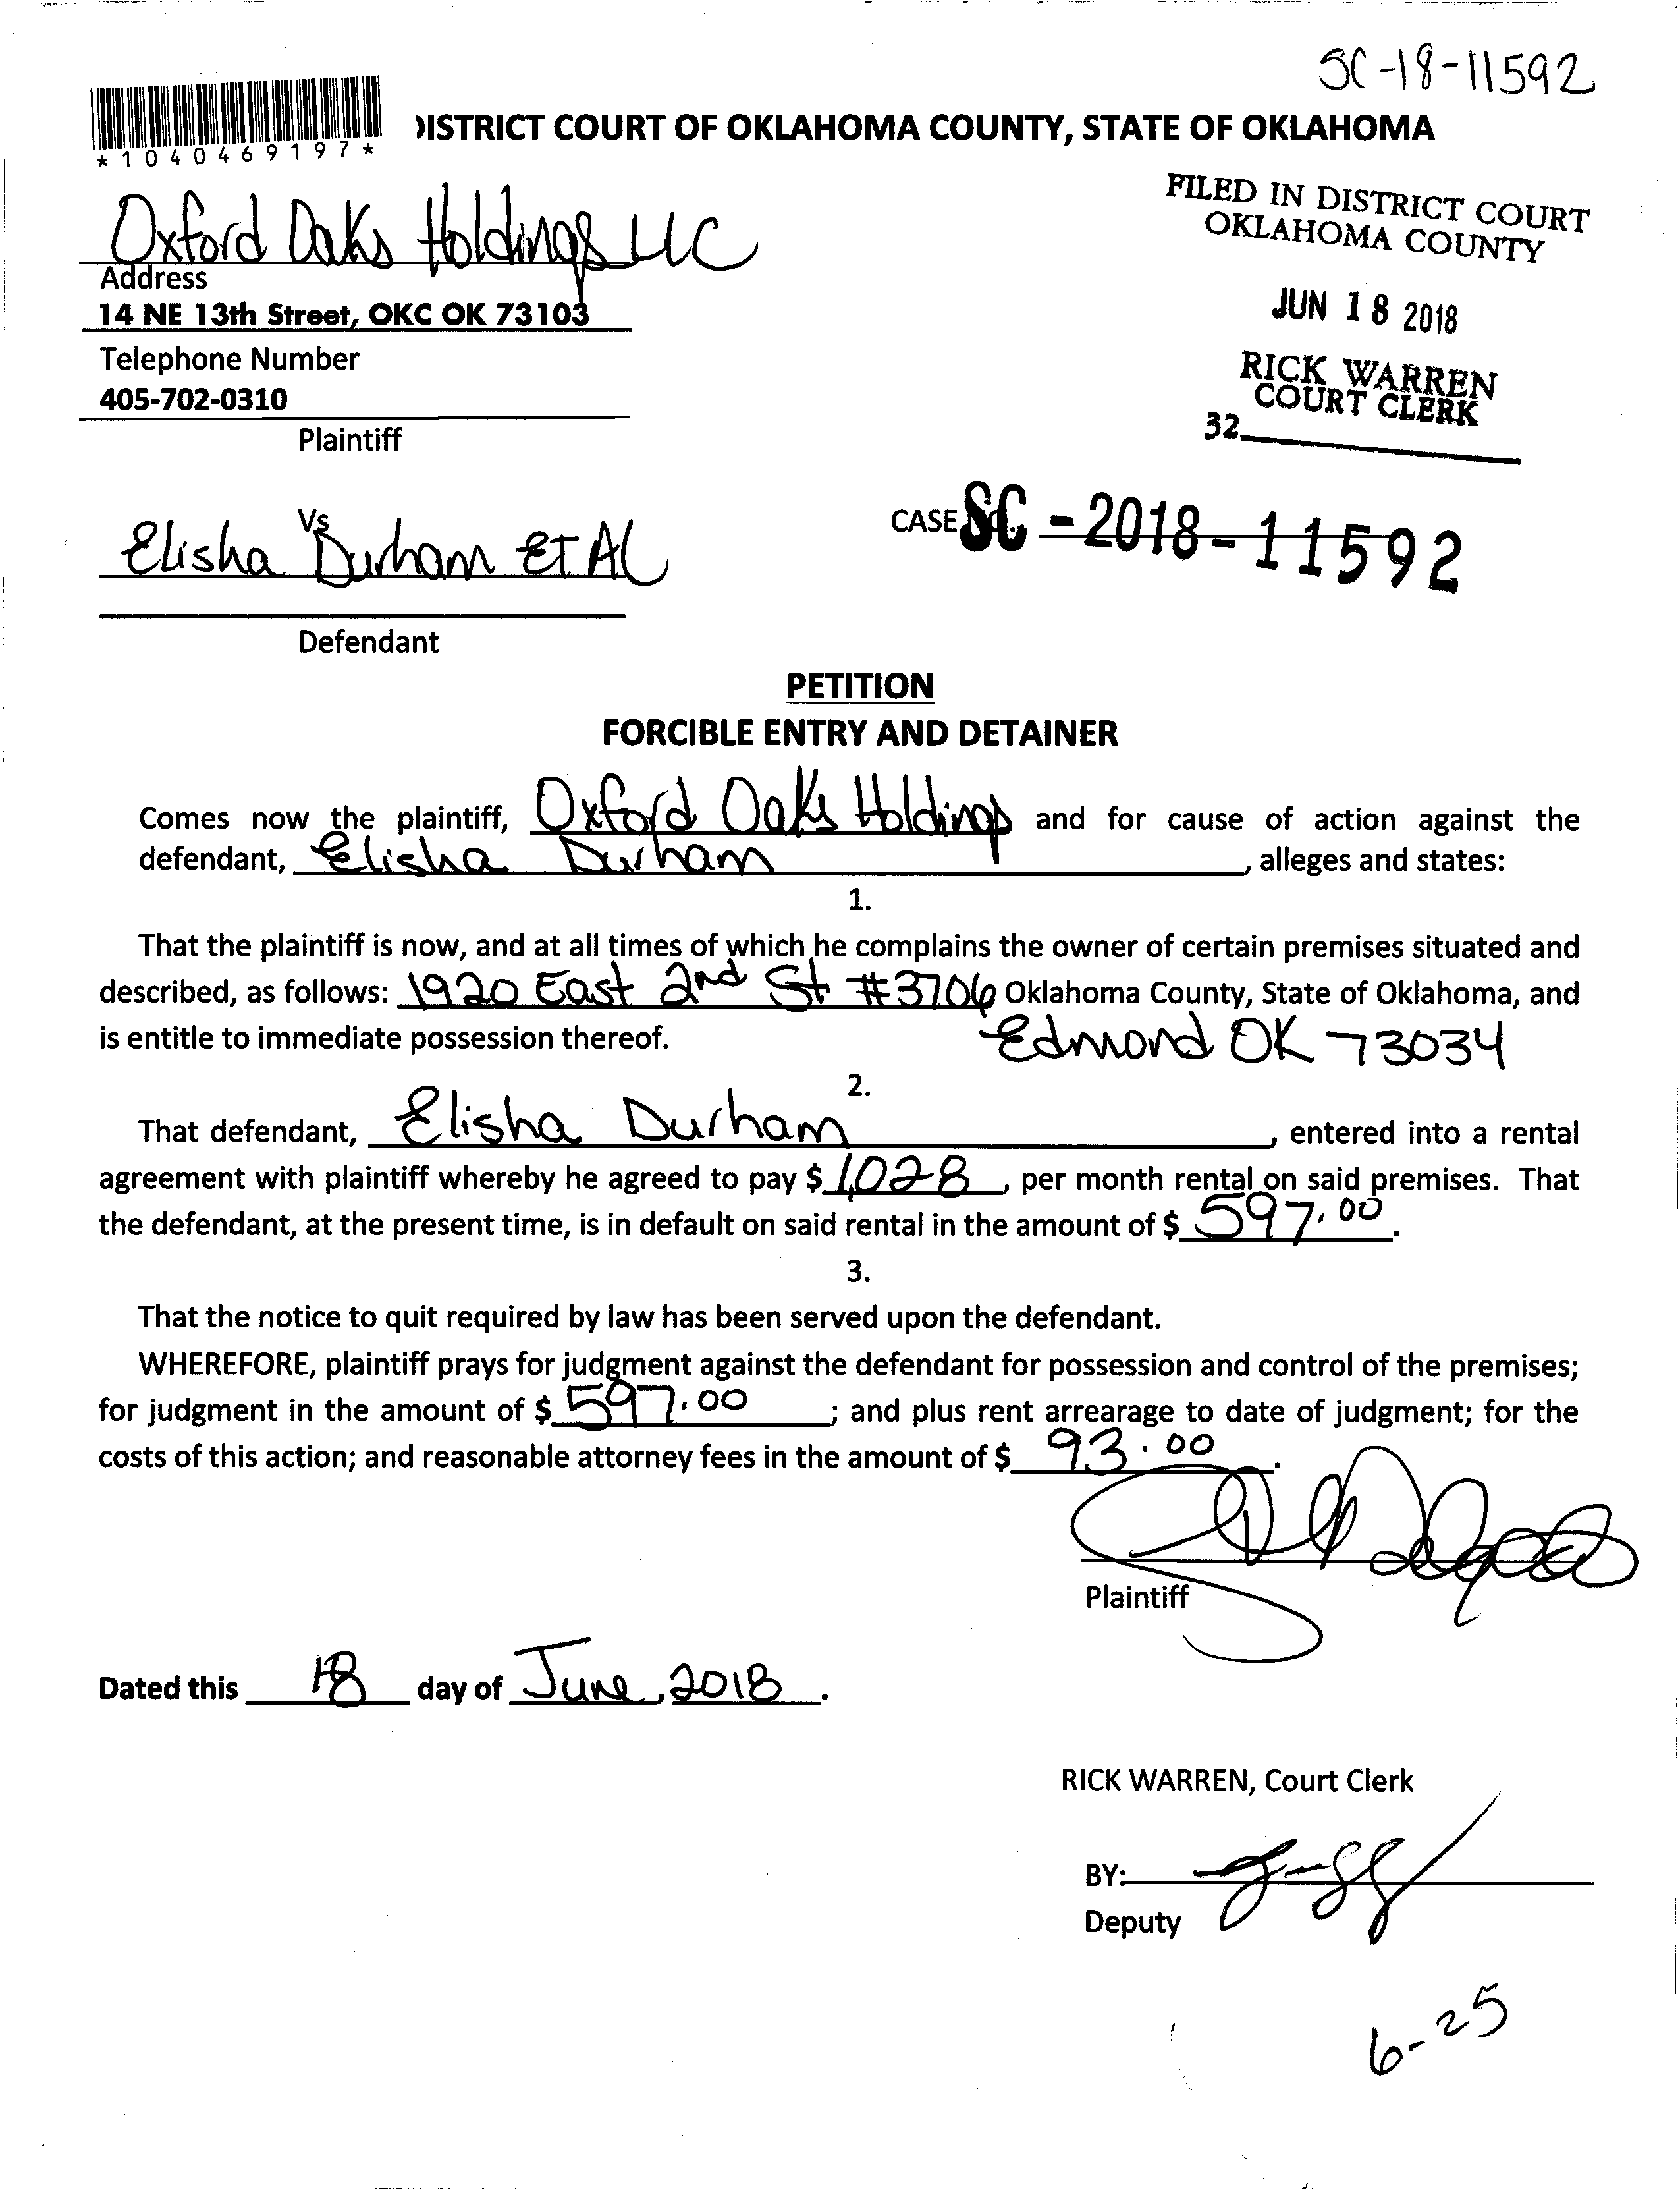 SC-18-11592
*1040469197*
DISTRICT COURT OF OKLAHOMA COUNTY, STATE OF OKLAHOMA
FILED IN DISTRICT COURT
OKLAHOMA COUNTY
JUN 18 2018
RICK WARREN
COURT CLERK
32
Oxford Oaks Holdings LLC
Address
14 NE 13th Street, OKC OK 73103
Telephone Number
405-702-0310
Plaintiff
Vs
Elisha Durham ET AL
Defendant
CASE NO. SC-2018-11592
PETITION
FORCIBLE ENTRY AND DETAINER
Comes now the plaintiff, Oxford Oaks Holdings and for cause of action against the
defendant, Elisha Durham, alleges and states:
1.
That the plaintiff is now, and at all times of which he complains the owner of certain premises situated and
described, as follows: 1920 East 2nd St #3706 Oklahoma County, State of Oklahoma, and
is entitle to immediate possession thereof. Edmond OK 73034
2.
That defendant, Elisha Durham, entered into a rental
agreement with plaintiff whereby he agreed to pay $ 1,028, per month rental on said premises. That
the defendant, at the present time, is in default on said rental in the amount of $ 597.00.
3.
That the notice to quit required by law has been served upon the defendant.
WHEREFORE, plaintiff prays for judgment against the defendant for possession and control of the premises;
for judgment in the amount of $ 597.00; and plus rent arrearage to date of judgment; for the
costs of this action; and reasonable attorney fees in the amount of $ 93.00.
Plaintiff
Dated this 18 day of June, 2018.
RICK WARREN, Court Clerk
BY:
Deputy
6-25